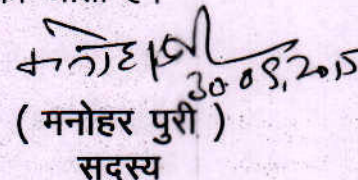 मनोहर पुरी
30.09.2015
( मनोहर पुरी )
सदस्य